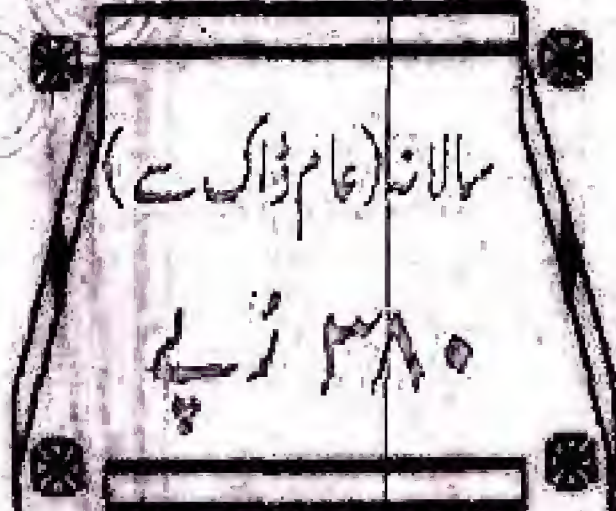 سالانہ (عام ڈاک سے)
۳۸۰ رُپے